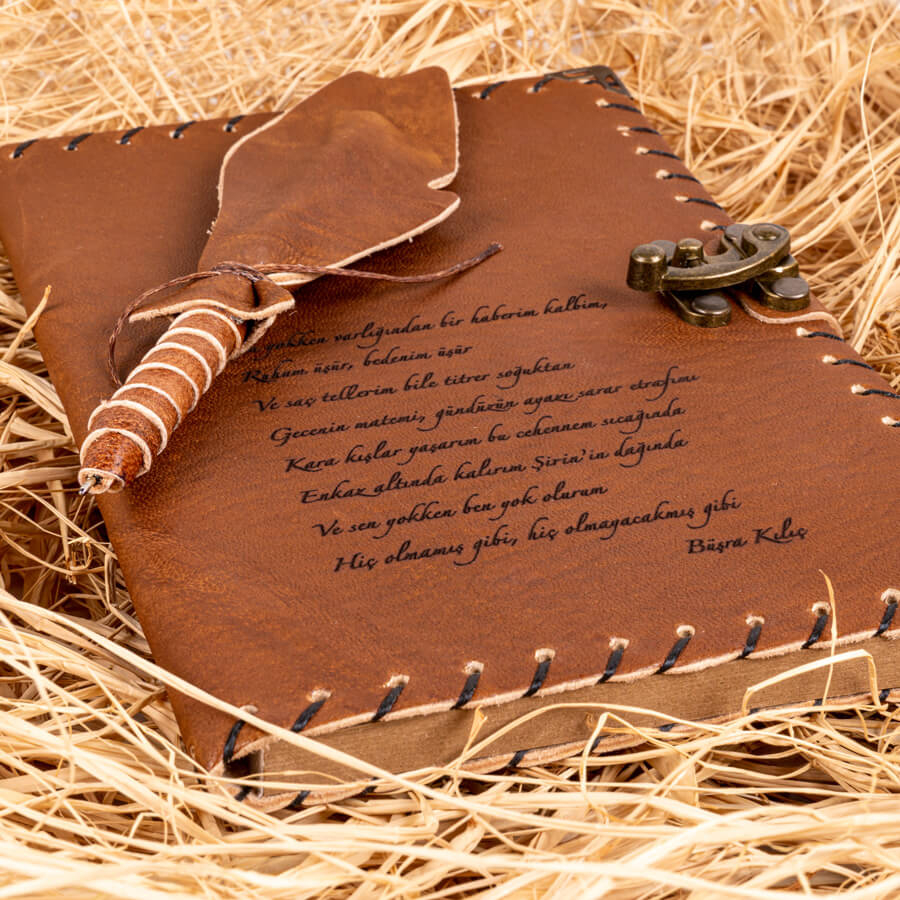 yokken varlığından bir haberim kalbim,
Ruhum üşür, bedenim üşür
Ve saç tellerim bile titrer soğuktan
Gecenin matemi, gündüzün ayazı sarar etrafımı
Kara kışlar yaşarım bu cehennem sıcağında
Enkaz altında kalırım Şirin'in dağında
Ve sen yokken ben yok olurum
Hiç olmamış gibi, hiç olmayacakmış gibi
Büşra Kılıç